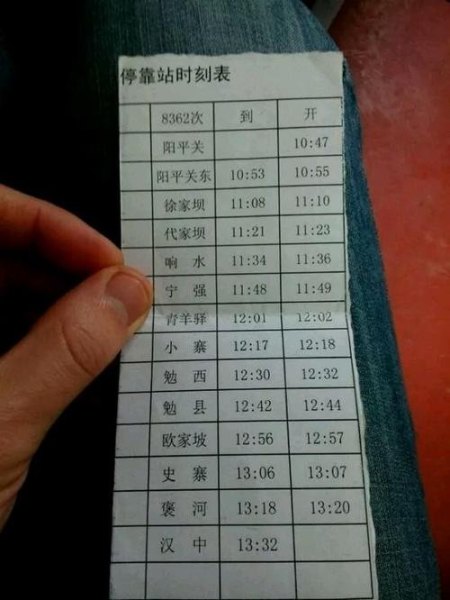 停靠站时刻表
8362次 到 开
阳平关 10:47
阳平关东 10:53 10:55
徐家坝 11:08 11:10
代家坝 11:21 11:23
响水 11:34 11:36
宁强 11:48 11:49
青羊驿 12:01 12:02
小寨 12:17 12:18
勉西 12:30 12:32
勉县 12:42 12:44
欧家坡 12:56 12:57
史寨 13:06 13:07
褒河 13:18 13:20
汉中 13:32